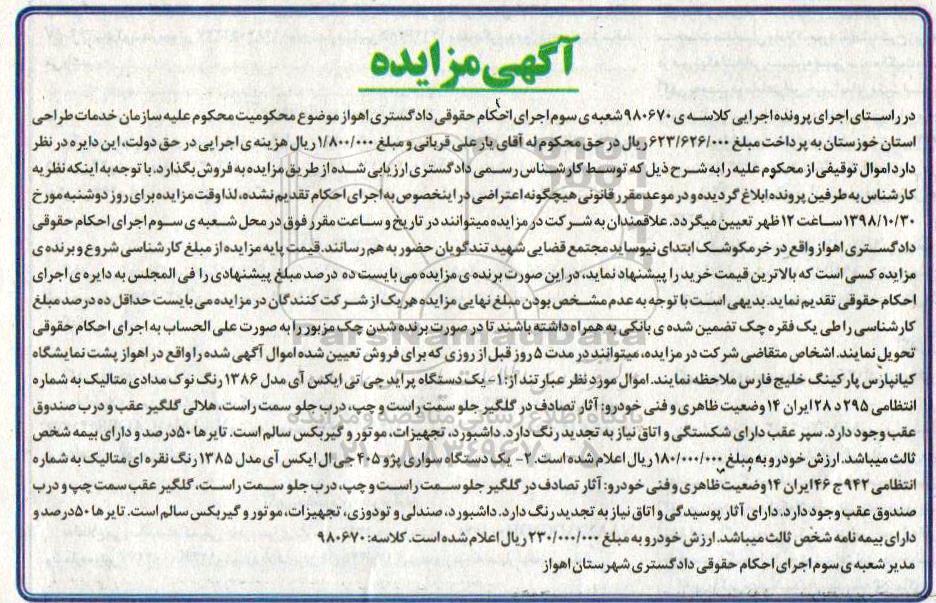 آگهی مزایده
در راستای اجرای پرونده اجرایی کلاسه ی ۹۸۰۶۷۰ شعبه ی سوم اجرای احکام حقوقی دادگستری اهواز موضوع محکومیت محکوم علیه سازمان خدمات طراحی
استان خوزستان به پرداخت مبلغ ۶۲۳/۶۲۶/۰۰۰ ریال در حق محکوم له آقای یار علی قربانی و مبلغ ۱/۸۰۰/۰۰۰ ریال هزینه ی اجرایی در حق دولت، این دایره در نظر
دارد اموال توقیفی از محکوم علیه را به شرح ذیل که توسط کارشناس رسمی دادگستری ارزیابی شده از طریق مزایده به فروش بگذارد. با توجه به اینکه نظریه
کارشناس به طرفین پرونده ابلاغ گردیده و در موعد مقرر قانونی هیچگونه اعتراضی در اینخصوص به اجرای احکام تقدیم نشده، لذا وقت مزایده برای روز دوشنبه مورخ
۱۳۹۸/۱۰/۳۰ ساعت ۱۲ ظهر تعیین میگردد. علاقمندان به شرکت در مزایده میتوانند در تاریخ و ساعت مقرر فوق در محل شعبه ی سوم اجرای احکام حقوقی
دادگستری اهواز واقع در خرمکوشک ابتدای نیوساید مجتمع قضایی شهید تندگویان حضور به هم رسانند. قیمت پایه مزایده از مبلغ کارشناسی شروع و برنده ی
مزایده کسی است که بالاترین قیمت خرید را پیشنهاد نماید، در این صورت برنده ی مزایده می بایست ده درصد مبلغ پیشنهادی را فی المجلس به دایره ی اجرای
احکام حقوقی تقدیم نماید. بدیهی است با توجه به عدم مشخص بودن مبلغ نهایی مزایده هر یک از شرکت کنندگان در مزایده می بایست حداقل ده درصد مبلغ
کارشناسی را طی یک فقره چک تضمین شده ی بانکی به همراه داشته باشند تا در صورت برنده شدن چک مزبور را به صورت علی الحساب به اجرای احکام حقوقی
تحویل نمایند. اشخاص متقاضی شرکت در مزایده، میتوانند در مدت ۵ روز قبل از روزی که برای فروش تعیین شده اموال آگهی شده را واقع در اهواز پشت نمایشگاه
کیانپارس پارکینگ خلیج فارس ملاحظه نمایند. اموال مورد نظر عبارتند از: ۱- یک دستگاه پراید جی تی ایکس آی مدل ۱۳۸۶ رنگ نوک مدادی متالیک به شماره
انتظامی ۲۹۵ د ۲۸ ایران ۱۴ وضعیت ظاهری و فنی خودرو: آثار تصادف در گلگیر جلو سمت راست و چپ، درب جلو سمت راست، هلالی گلگیر عقب و درب صندوق
عقب وجود دارد. سپر عقب دارای شکستگی و اتاق نیاز به تجدید رنگ دارد. داشبورد، تجهیزات، موتور و گیربکس سالم است. تایرها ۵۰درصد و دارای بیمه شخص
ثالث میباشد. ارزش خودرو به مبلغ ۱۸۰/۰۰۰/۰۰۰ ریال اعلام شده است. ۲- یک دستگاه سواری پژو ۴۰۵ جی ال ایکس آی مدل ۱۳۸۵ رنگ نقره ای متالیک به شماره
انتظامی ۹۴۲ ج ۴۶ ایران ۱۴ وضعیت ظاهری و فنی خودرو: آثار تصادف در گلگیر جلو سمت راست و چپ، درب جلو سمت راست، گلگیر عقب سمت چپ و درب
صندوق عقب وجود دارد. دارای آثار پوسیدگی و اتاق نیاز به تجدید رنگ دارد. داشبورد، صندلی و تودوزی، تجهیزات، موتور و گیربکس سالم است. تایرها ۵۰درصد و
دارای بیمه نامه شخص ثالث میباشد. ارزش خودرو به مبلغ ۲۳۰/۰۰۰/۰۰۰ ریال اعلام شده است. کلاسه: ۹۸۰۶۷۰
مدیر شعبه ی سوم اجرای احکام حقوقی دادگستری شهرستان اهواز
ParsNamadData